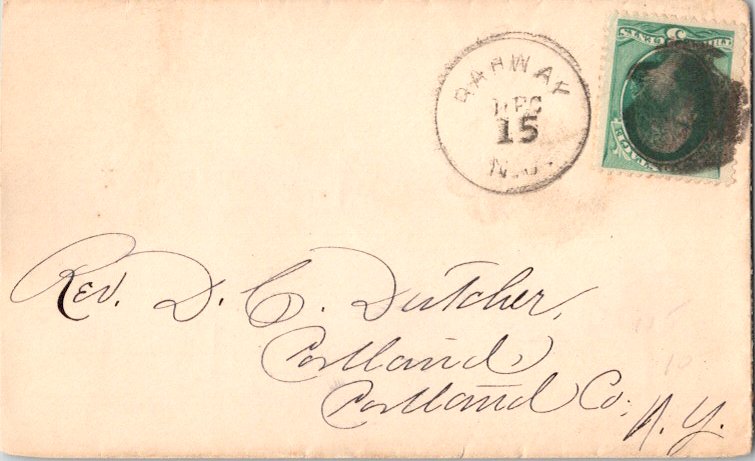 RAHWAY
DEC
15
N.J.
3
Rev. D. C. Dutcher,
Cortland
Cortland Co.,
N. Y.